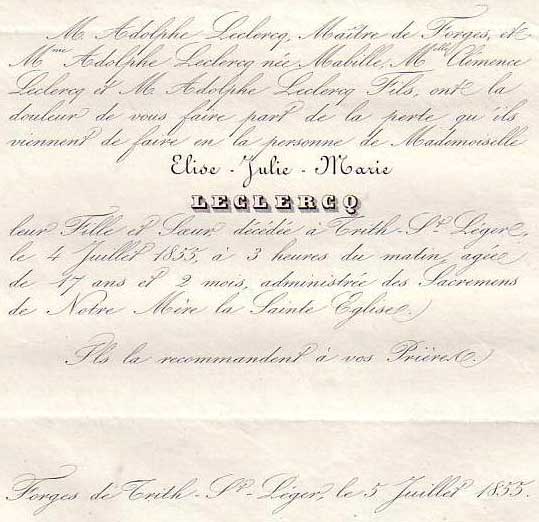 M. Adolphe Leclercq, Maître de Forges, et
Mme Adolphe Leclercq née Mabille, Melle Clémence
Leclercq et M. Adolphe Leclercq Fils, ont la
douleur de vous faire part de la perte qu'ils
viennent de faire en la personne de Mademoiselle
Elise - Julie - Marie
LECLERCQ
leur Fille et Sœur décédée à Trith-St Léger,
le 4 Juillet 1855, à 3 heures du matin, agée
de 17 ans et 2 mois, administrée des Sacremens
de Notre Mère la Sainte Eglise.
Ils la recommandent à vos Prières.
Forges de Trith-St-Léger, le 5 Juillet 1855.